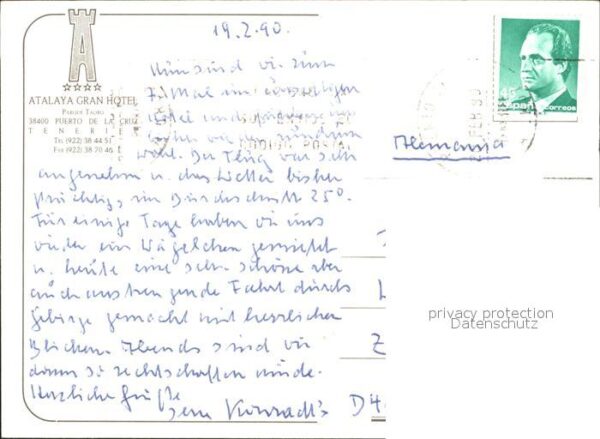 19.2.90.
ATALAYA GRAN HOTEL
PARQUE TAORO
38400 PUERTO DE LA CRUZ
TENERIFE
Tel. (922) 38 44 51
Fax (922) 38 70 46
Nun sind wir zum
7. Mal im
Insel und
wohl. Der Flug war sehr
angenehm u. das Wetter bisher
prächtig, im Durchschnitt 25°.
Für einige Tage haben wir uns
wieder ein Wägelchen gemietet
u. heute eine sehr schöne aber
auch anstrengende Fahrt durchs
Gebirge gemacht mit herrlichen
Blicken. Abends sind wir
dann so rechtschaffen müde.
Herzliche Grüße
Konradt's
45
España correos
POSTAL
Alemania
Z
D 4
privacy protection
Datenschutz